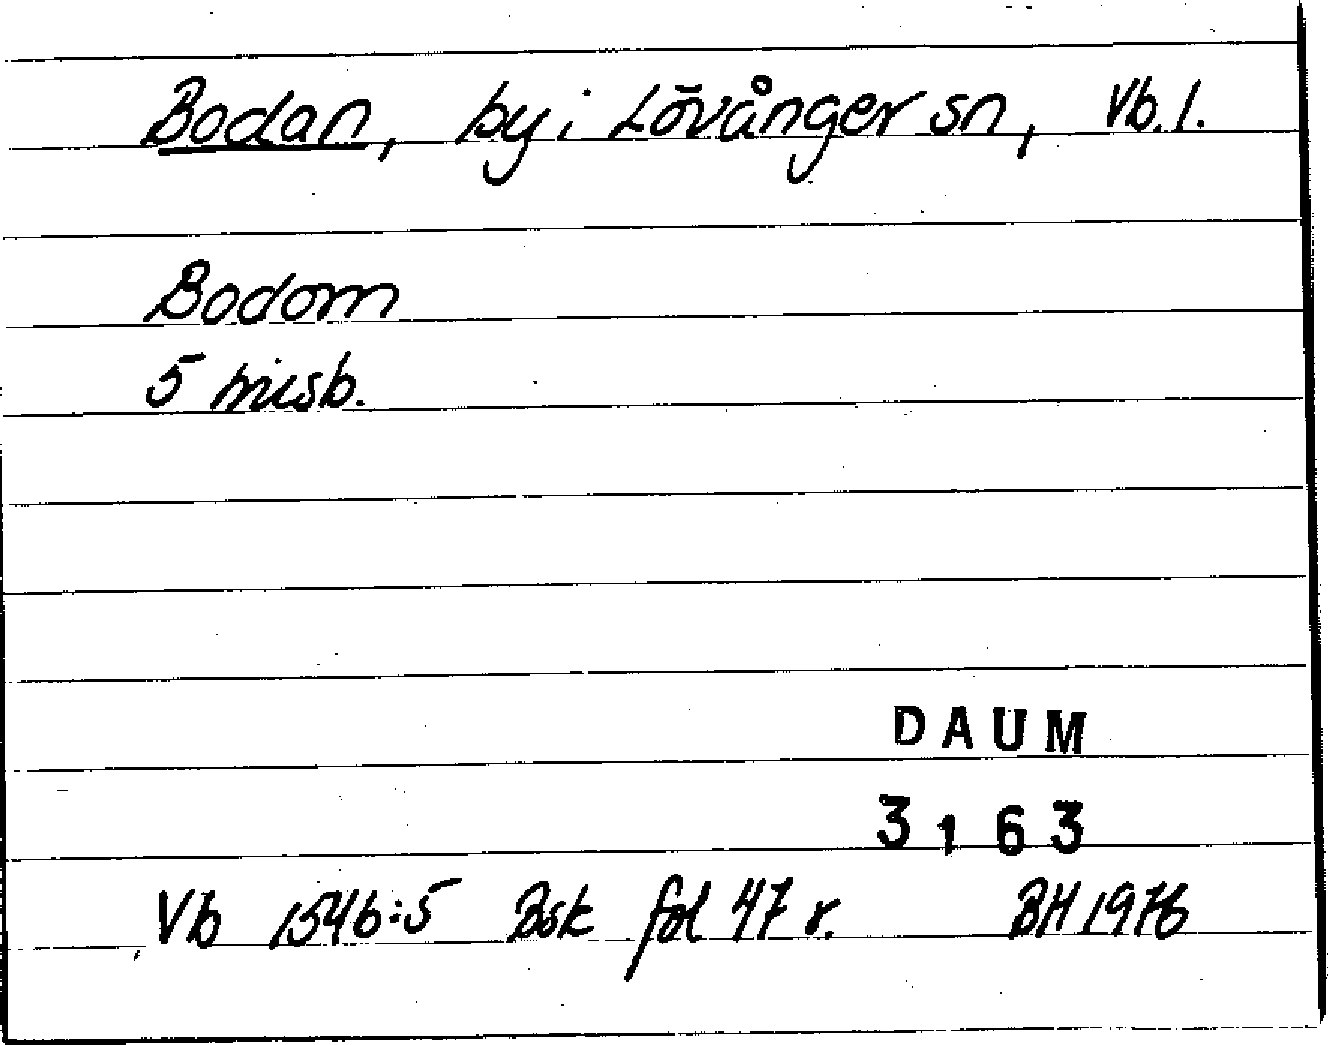 Bodan, by i Lövånger sn, Vb. l.
Bodom
5 husb.
DAUM
3163
Vb 1546:5 Bsk fol 47 r. BH 1976